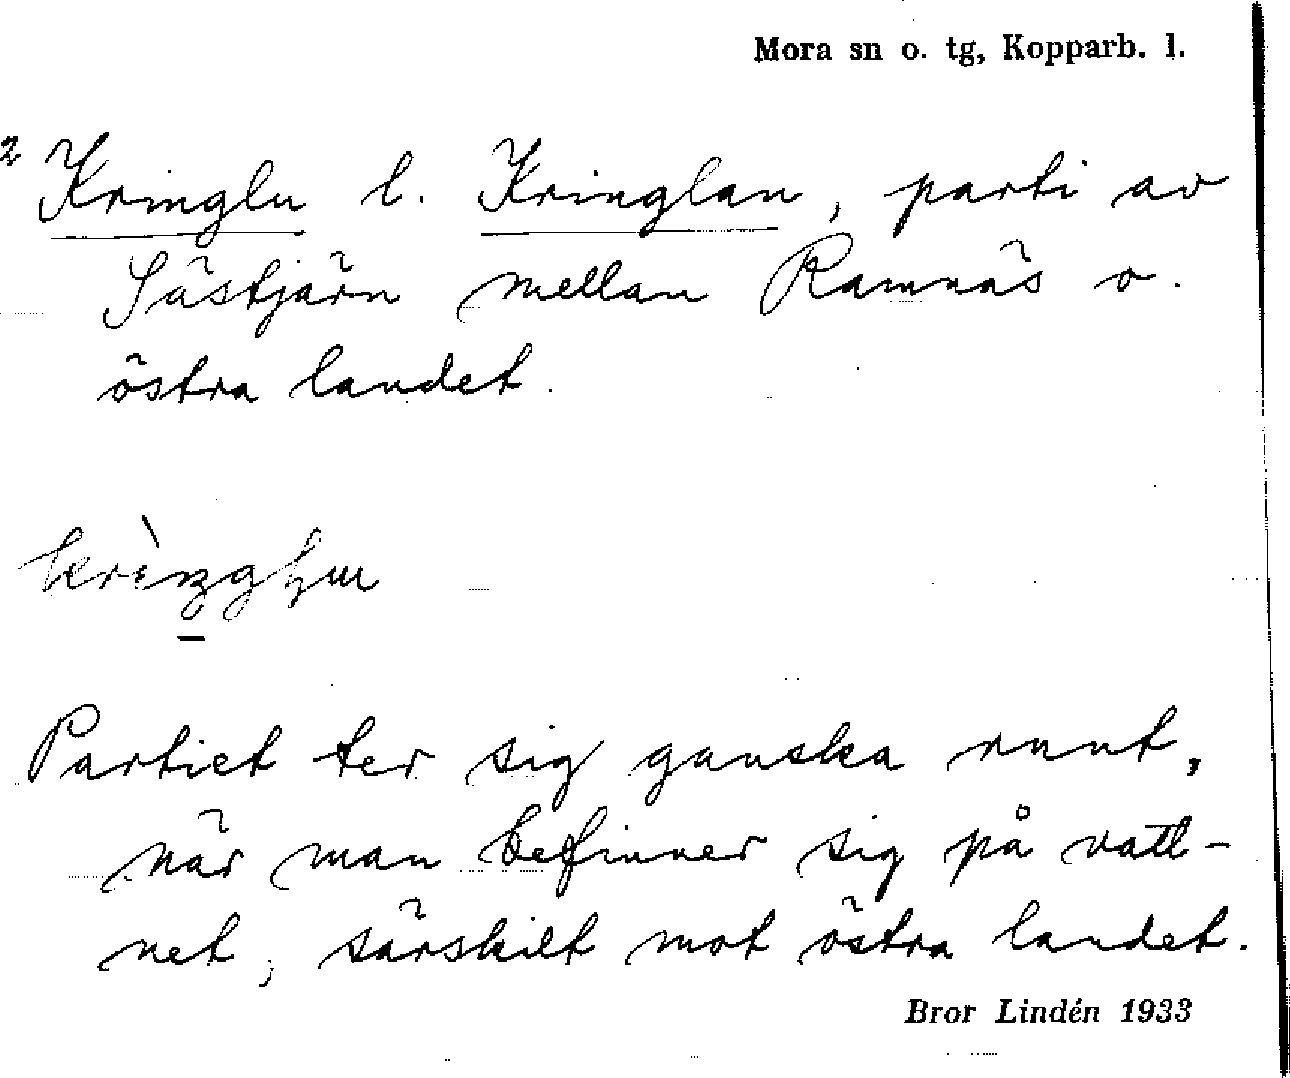 Mora sn o. tg, Kopparb. l.
2 Kringlu l. Kringlan, parti av
Såstjärn mellan Ramnäs o.
östra landet.
Partiet ter sig ganska runt,
när man befinner sig på vatt-
net, särskilt mot östra landet.
Bror Lindén 1933